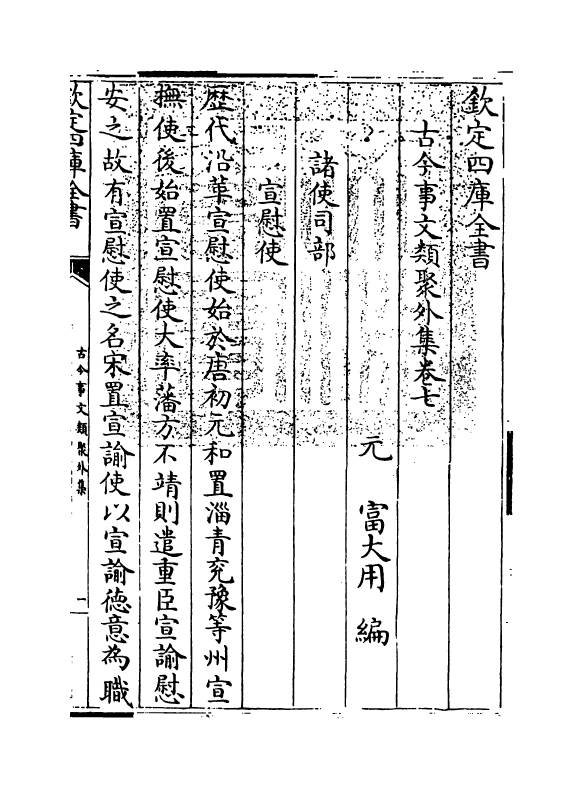 欽定四庫全書
古今事文類聚外集卷七
元 富大用 編
諸使司部
宣慰使
歷代沿革宣慰使始於唐初元和置淄青兖豫等州宣
撫使後始置宣慰使大率藩方不靖則遣重臣宣諭慰
安之故有宣慰使之名宋置宣諭使以宣諭德意為職
欽定四庫全書
古今事文類聚外集
一